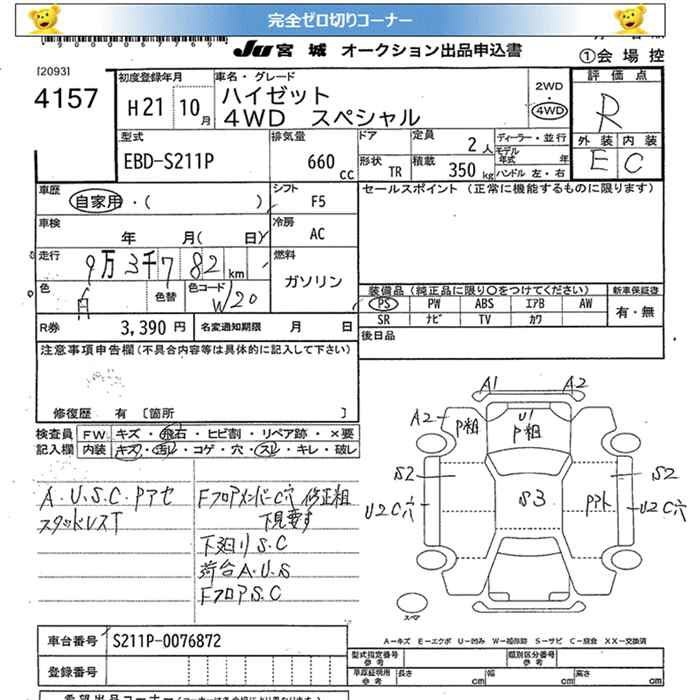 完全ゼロ切りコーナー
JU 宮城 オークション出品申込書
①会場控
[2093]
4157
初度登録年月
H21 10月
車名・グレード
ハイゼット
4WD スペシャル
2WD
・
4WD
評価点
R
外装 内装
E C
型式
EBD-S211P
排気量
660 cc
ドア
形状 TR
定員 2人
積載 350 kg
ディーラー・並行
モデル年式 年
ハンドル 左・右
車歴
自家用・( )
シフト F5
セールスポイント (正常に機能するものに限ります)
車検
年 月( 日)
冷房 AC
走行
9万3千782km
燃料
ガソリン
色
白
色替
色コード
W20
装備品 (純正品に限り○をつけてください)
新車保証書
PS PW ABS エアB AW
有・無
SR ナビ TV カワ
R券 3,390円
名変通知期限 月 日
後日品
注意事項申告欄(不具合内容等は具体的に記入して下さい)
修復歴 有 〔箇所 〕
検査員記入欄
FW キズ・飛石・ヒビ割・リペア跡・×要
内装 キズ・汚レ・コゲ・穴・スレ・キレ・破レ
A・U・S・C・Pアセ
スタッドレスT
FフロアメンバーC穴 修正粗
下見要す
下廻りS.C
荷台A.U.S
FフロアS.C
A1 A2
A2 P粗 U1 P粗
S2 S3 S2
U2C穴 U2C穴
スペア
A-キズ E-エクボ U-凹み W-補修跡 S-サビ C-腐食 XX-交換済
車台番号 S211P-0076872
登録番号
型式指定番号 参考
類別区分番号 参考
長さ cm 幅 cm 高さ cm